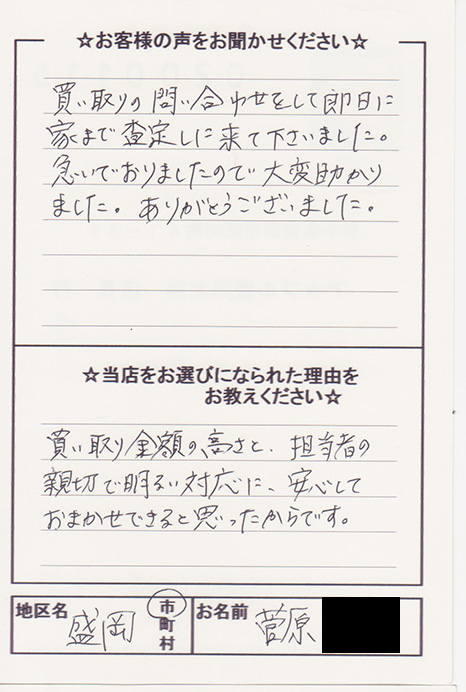 ☆お客様の声をお聞かせください☆
買い取りの問い合わせをして即日に
家まで査定しに来て下さいました。
急いでおりましたので大変助かり
ました。ありがとうございました。
☆当店をお選びになられた理由を
お教えください☆
買い取り金額の高さと、担当者の
親切で明るい対応に、安心して
おまかせできると思ったからです。
地区名 盛岡 市町村 お名前 菅原